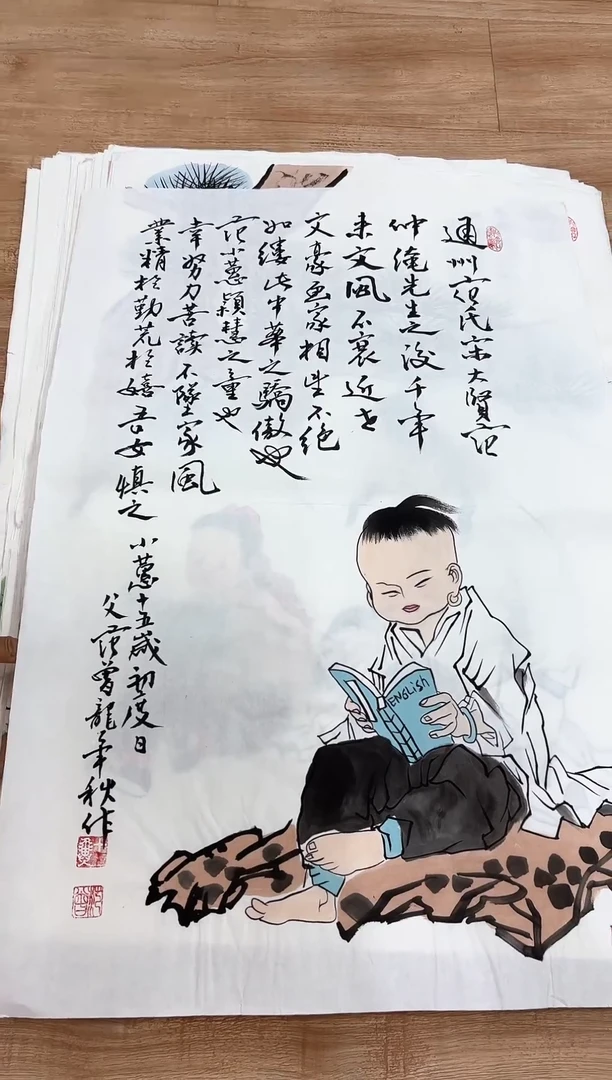 通州范氏宋大賢范
仲淹先生之後千年
来文風不衰近世
文豪画家相生不绝
如缕此中華之驕傲也
范小蕙颖慧之童也
幸努力苦讀不墜家風
業精於勤荒於嬉吾女慎之
小蕙十五歲初度日
父范曾龍年秋作
ENGLISH